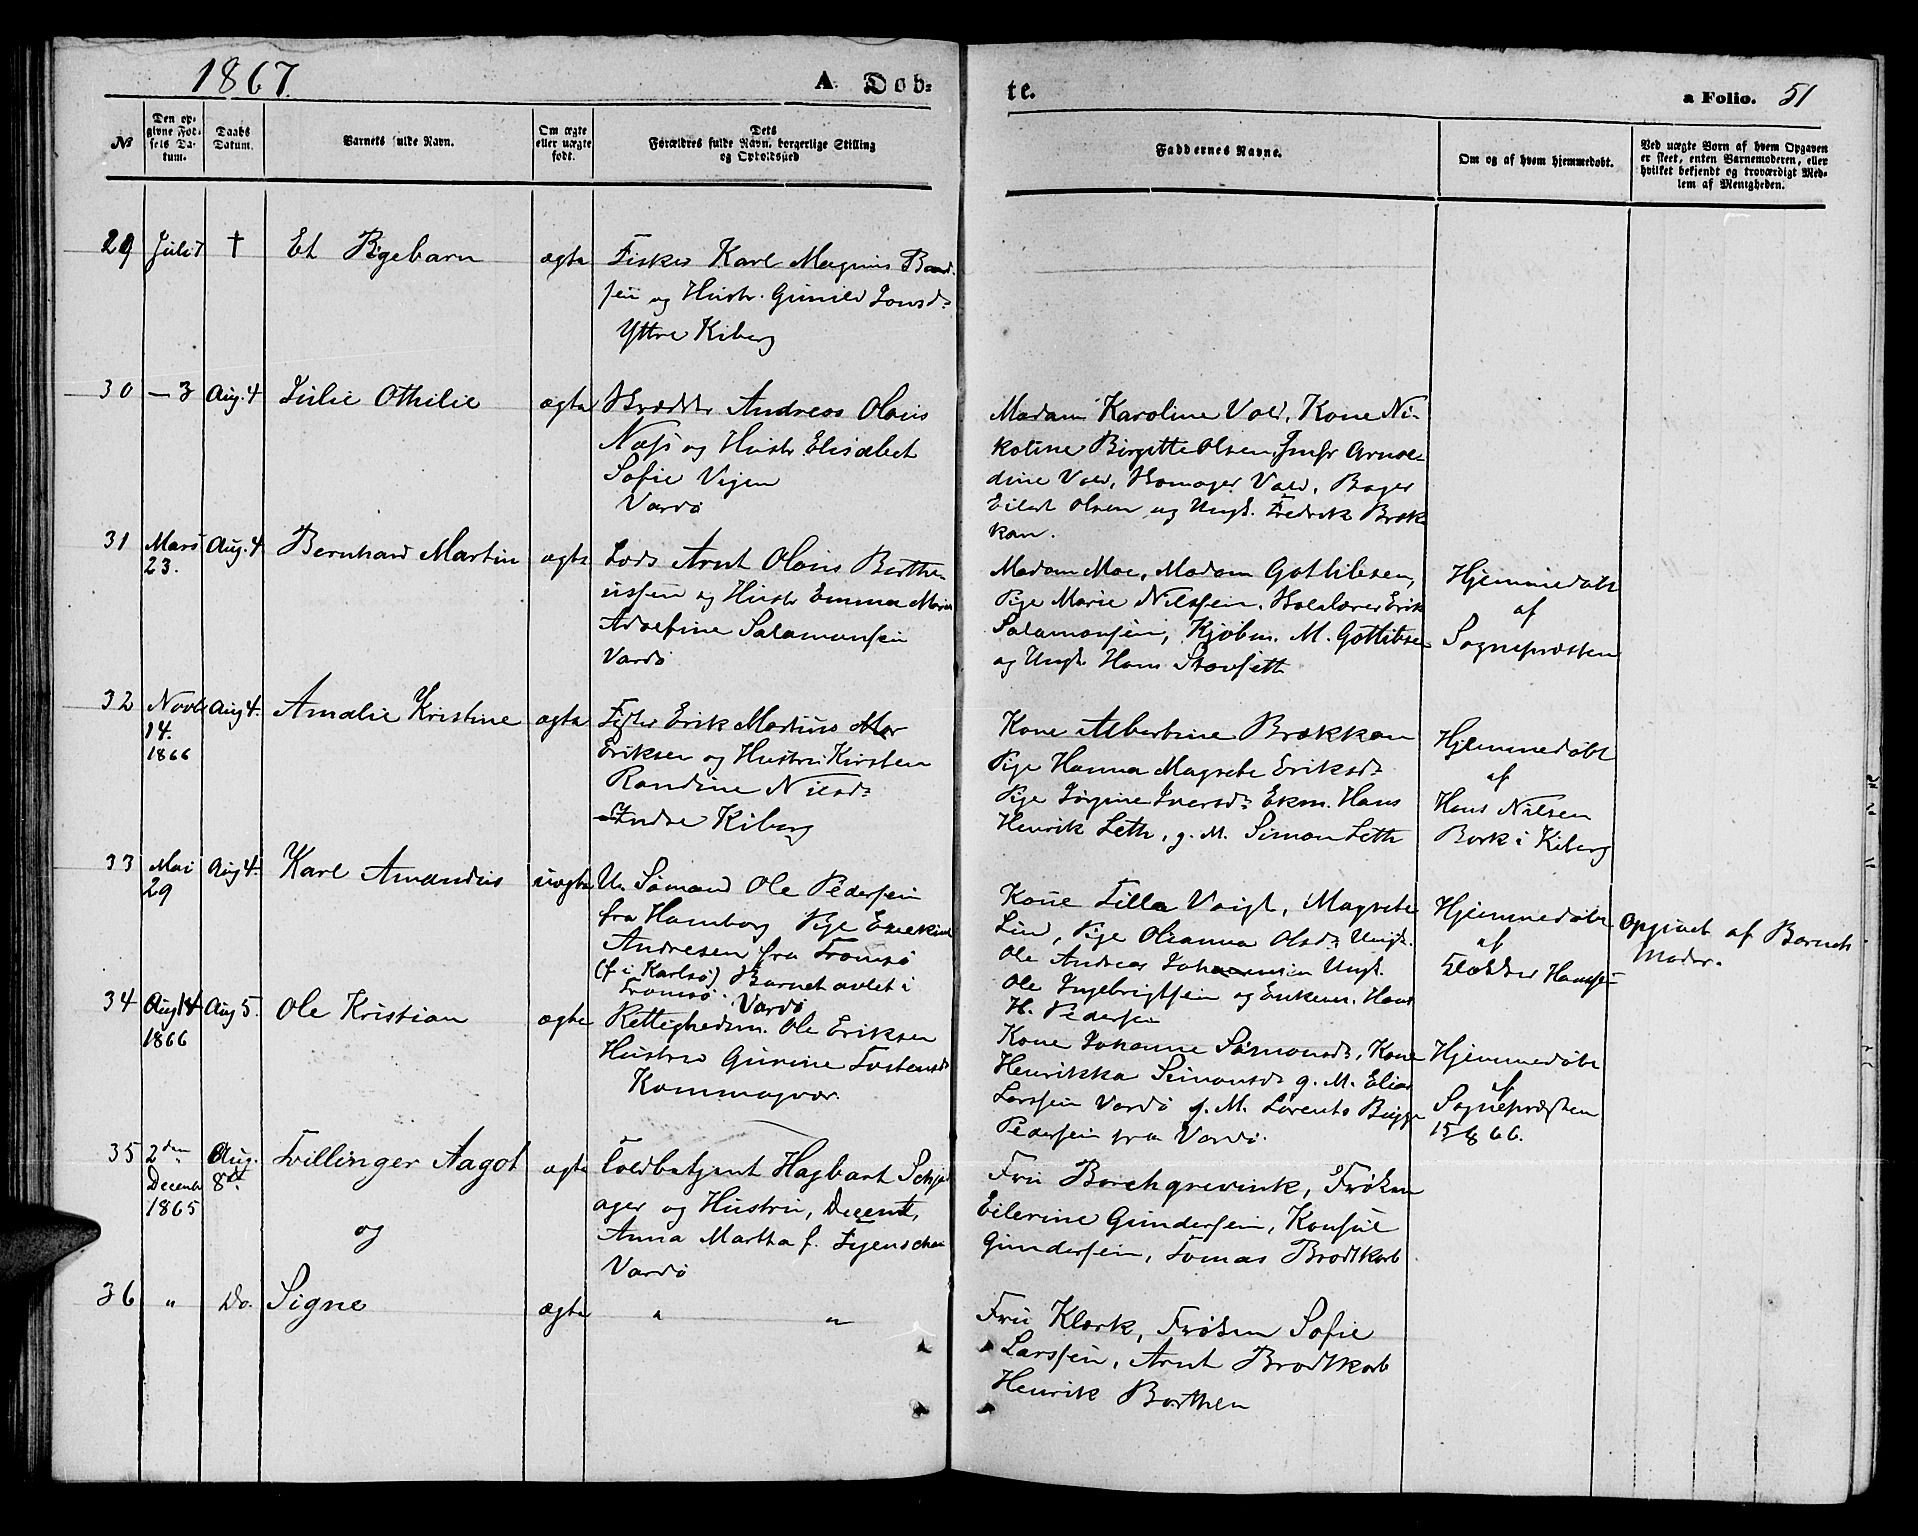 1867.
A. Døb-
te.
a Folio. 51
No
Den op-
givne Fød-
sels Da-
tum.
Daabs
Datum.
Barnets fulde Navn.
Om ægte
eller uægte
født.
Dets
Forældres fulde Navn, borgerlige Stilling
og Opholdssted
Faddernes Navne.
Om og af hvem hjemmedøbt.
Ved uægte Born af hvem Opgaven
er skeet, enten Barnemoderen, eller
hvilket bekjendt og troværdigt Med-
lem af Menigheden.
29 Juli † Et Pigebarn ægte Fisker Karl Magnus
sen og Hustr. Gunild Jonsd.
Yttre Kiberg
30 — 3 Aug. 4 Julie Othilie ægte Skrædder Andreas Olaus
Næss og Hustr Elisabet
Sofie Vigen
Vardø
Madam Karoline Vold, Kone Ni-
koline Birgitte Olsen, Jmfr Arnol-
dine Vold, Skomager Vold, Bager
Eilert Olsen og Ungk. Fredrik Bræk
kan.
31 Mars
23. Aug. 4 Bernhard Martin ægte Lods Arnt Olaus Berthe-
ussen og Hustr Emma Marie
Adolfine Salamonsen
Vardø
Madam Moe, Madam Gottlibsen,
Pige Marie Nilssen, Skolelærer Erik
Salamonsen, Kjøbm. M. Gottlibsen
og Ungk. Hans
Hjemmedøbt
af
Sognepræsten
32 Novbr
14.
1866 Aug 4. Amalie Kristine ægte Fisker Erik Martinus
Eriksen og Hustru Kirsten
Randine Nilsd.
Indre Kiberg
Kone Albertine Brækkan
Pige Hanna Magrete Eriksd.
Pige Jørgine Iversd. Ekm. Hans
Henrik Leth, g. M. Simon Leth
Hjemmedøbt
af
Hans Nilsen
Bork i Kiberg
33 Mai
29 Aug 4. Karl Amandus uægte U. Sømand Ole Pedersen
fra Hamborg Pige
Andresen fra Tromsø
(f i Karlsø) Barnet avlet i
Tromsø. Vardø
Kone Tilla Voigt, Magrete
Lind, Pige Olianna Olsd. Ungk.
Ole Andreas Johannesen Ungk.
Ole Ingebrigtsen og Enkem. Hans
H. Pedersen
Hjemmedøbt
af
Klokker Hanssen
Opgivet af Barnets
Moder.
34 Aug 14
1866 Aug 5. Ole Kristian ægte Rettighedsm. Ole Eriksen
Hustru Gurine Tostensd.
Kommagvær.
Kone Johanne Simonsd., Kone
Henrikka Simonsd. g. M. Elias
Larssen Vardø g. M. Lorents Bugge
Pedersen fra Vardø.
Hjemmedøbt
af
Sognepræsten
15/8 66.
35 2den
Decembr
1865 Aug.
8de. Tvillinger Aagot
og
ægte Toldbetjent Hagbart
ager og Hustru,
Anna Martha f. Fyenschou
Vardø
Fru Borchgrevink, Frøken
Eilerine Gundersen, Konsul
Gundersen, Tomas Brodtkorb
36 " Do. Signe ægte " "
Fru Klerk, Frøken Sofie
Larssen, Arnt Brodtkorb
Henrik Borthen